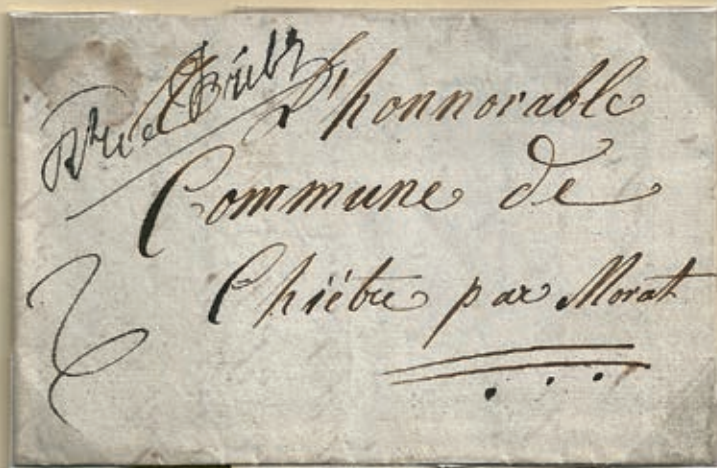 L'honnorable
Commune de
Chiétre par Morat